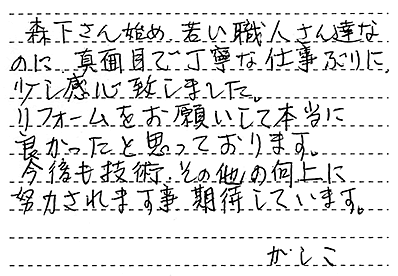 森下さん始め、若い職人さん達な
のに、真面目で丁寧な仕事ぶりに、
少し感心致しました。
リフォームをお願いして本当に
良かったと思っております。
今後も技術、その他の向上に
努力されます事期待しています。
かしこ